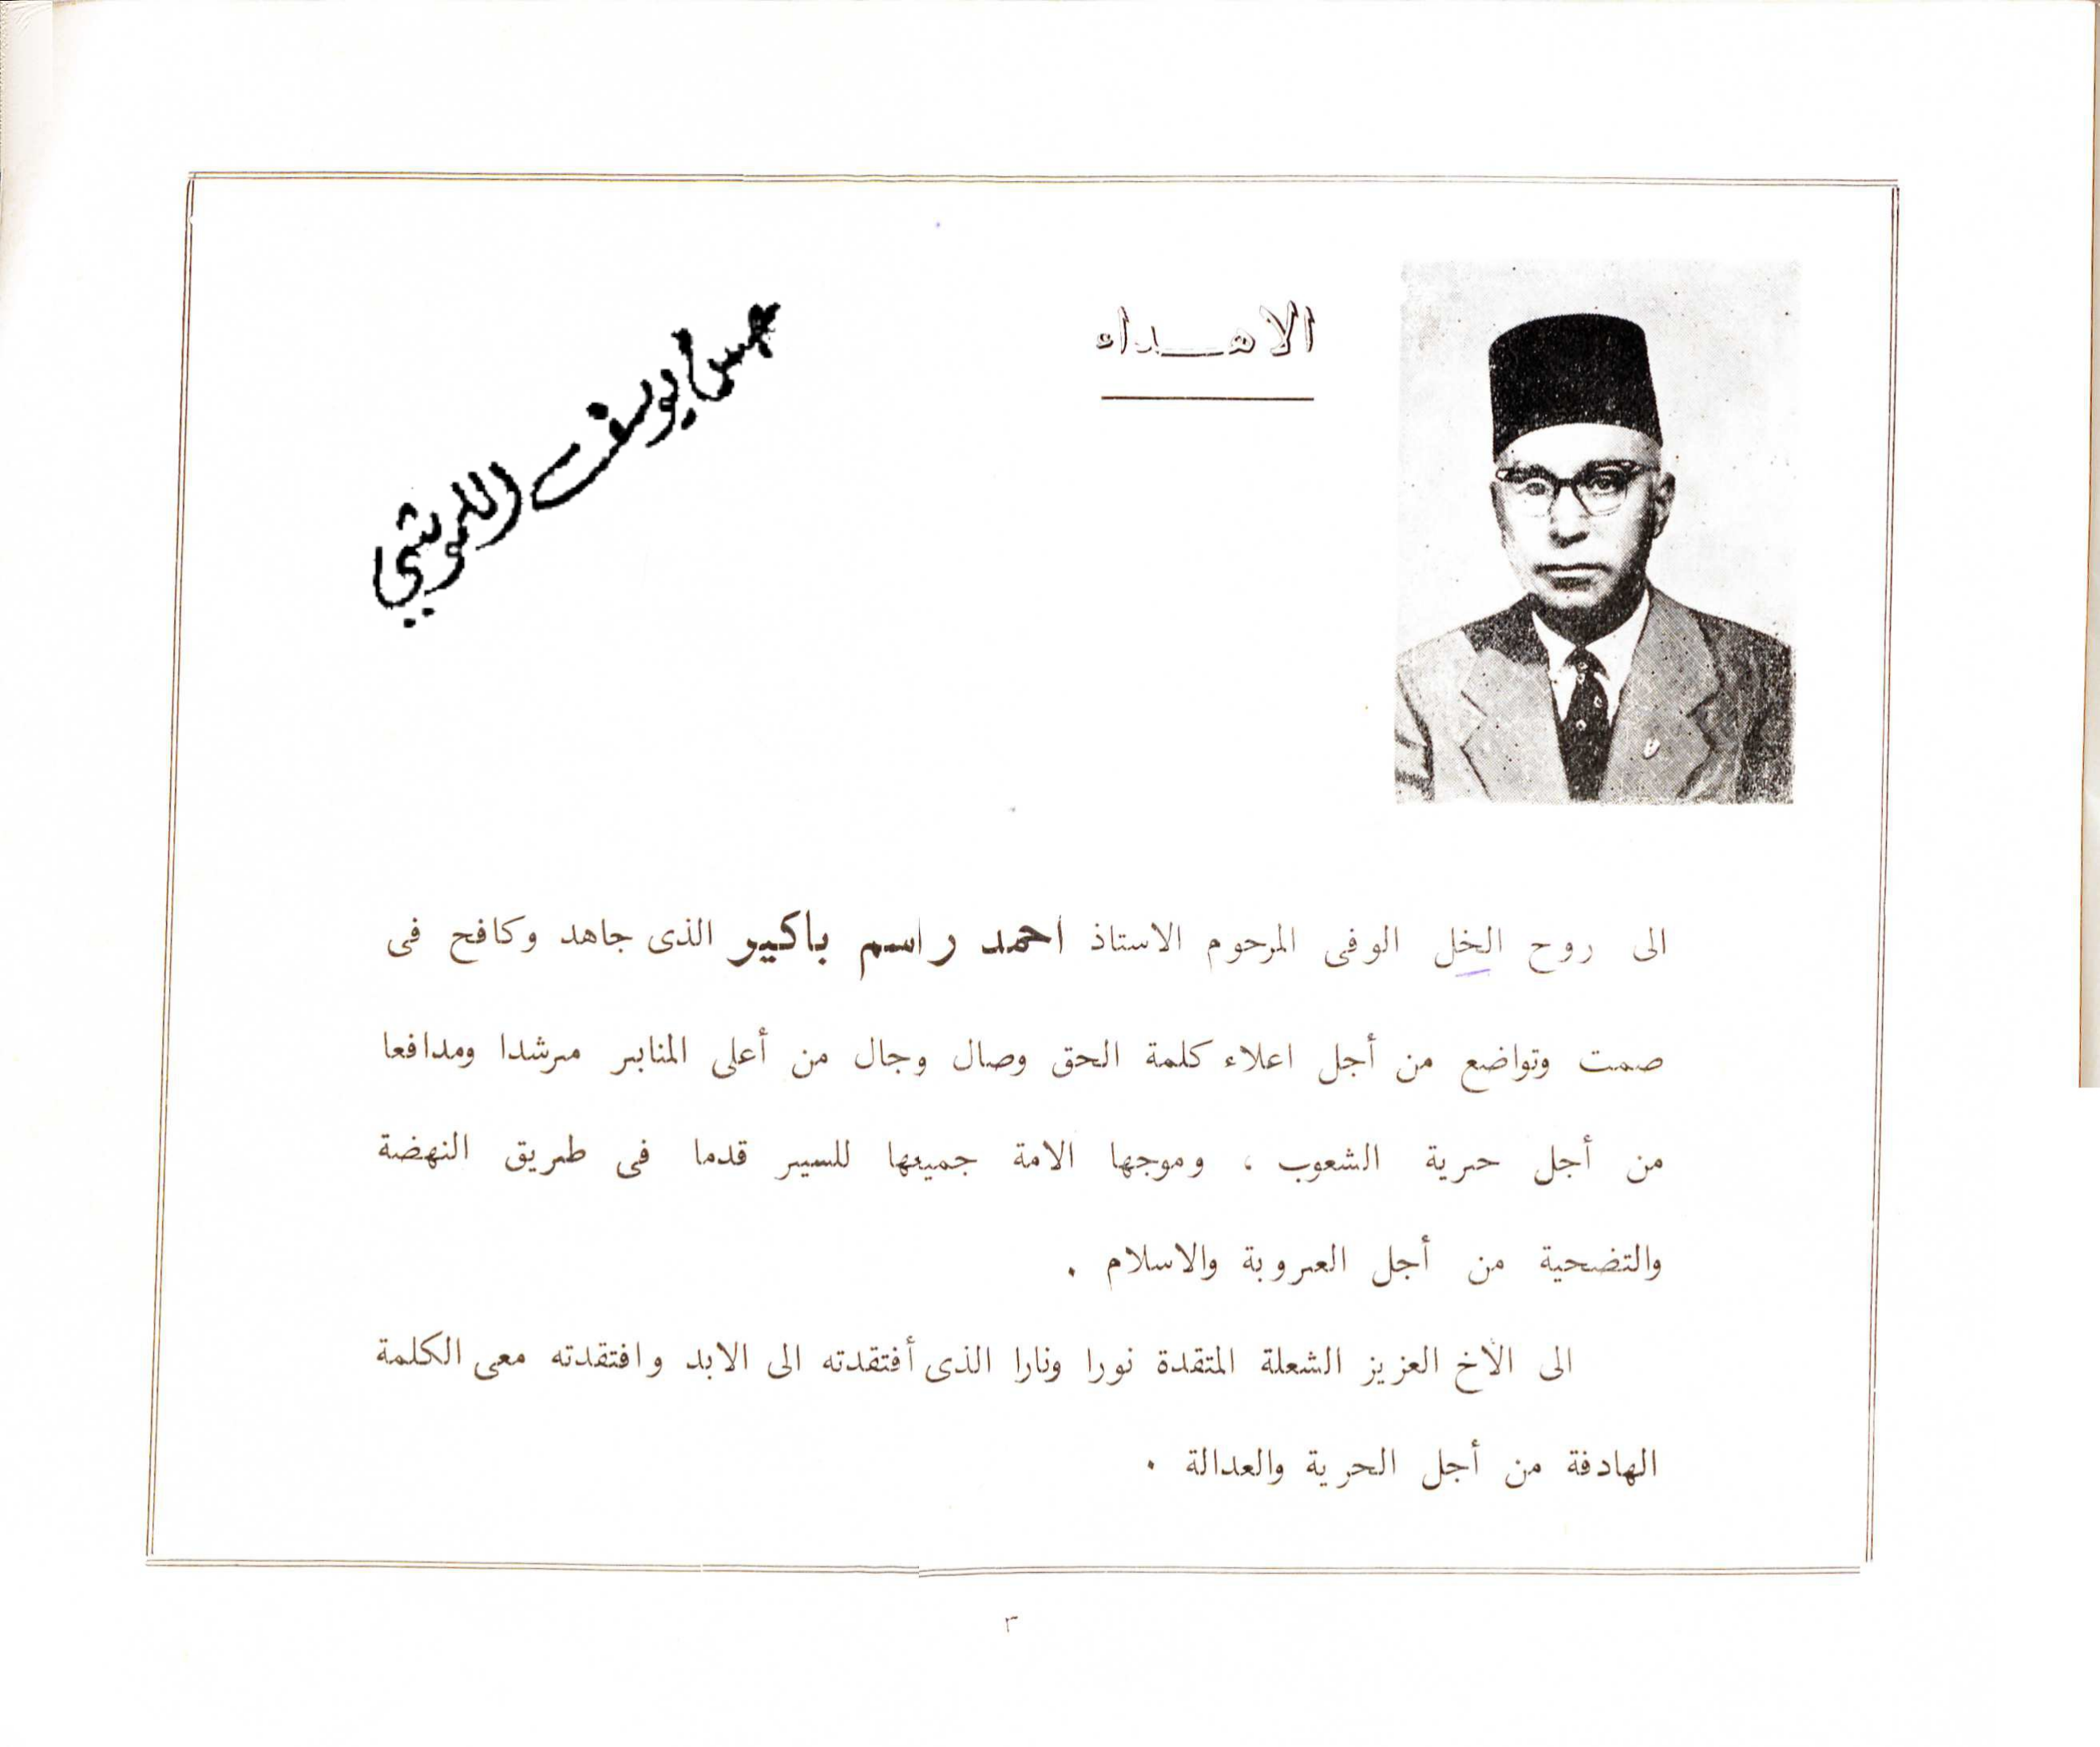 الاهـــداء
حسن يوسف
الى روح الخل الوفى المرحوم الاستاذ احمد راسم باكير الذى جاهد وكافح فى
صمت وتواضع من أجل اعلاء كلمة الحق وصال وجال من أعلى المنابر مرشدا ومدافعا
من أجل حرية الشعوب ، وموجها الامة جميعها للسير قدما فى طريق النهضة
والتضحية من أجل العروبة والاسلام .
الى الأخ العزيز الشعلة المتقدة نورا ونارا الذى أفتقدته الى الابد وافتقدته معى الكلمة
الهادفة من أجل الحرية والعدالة .
٣